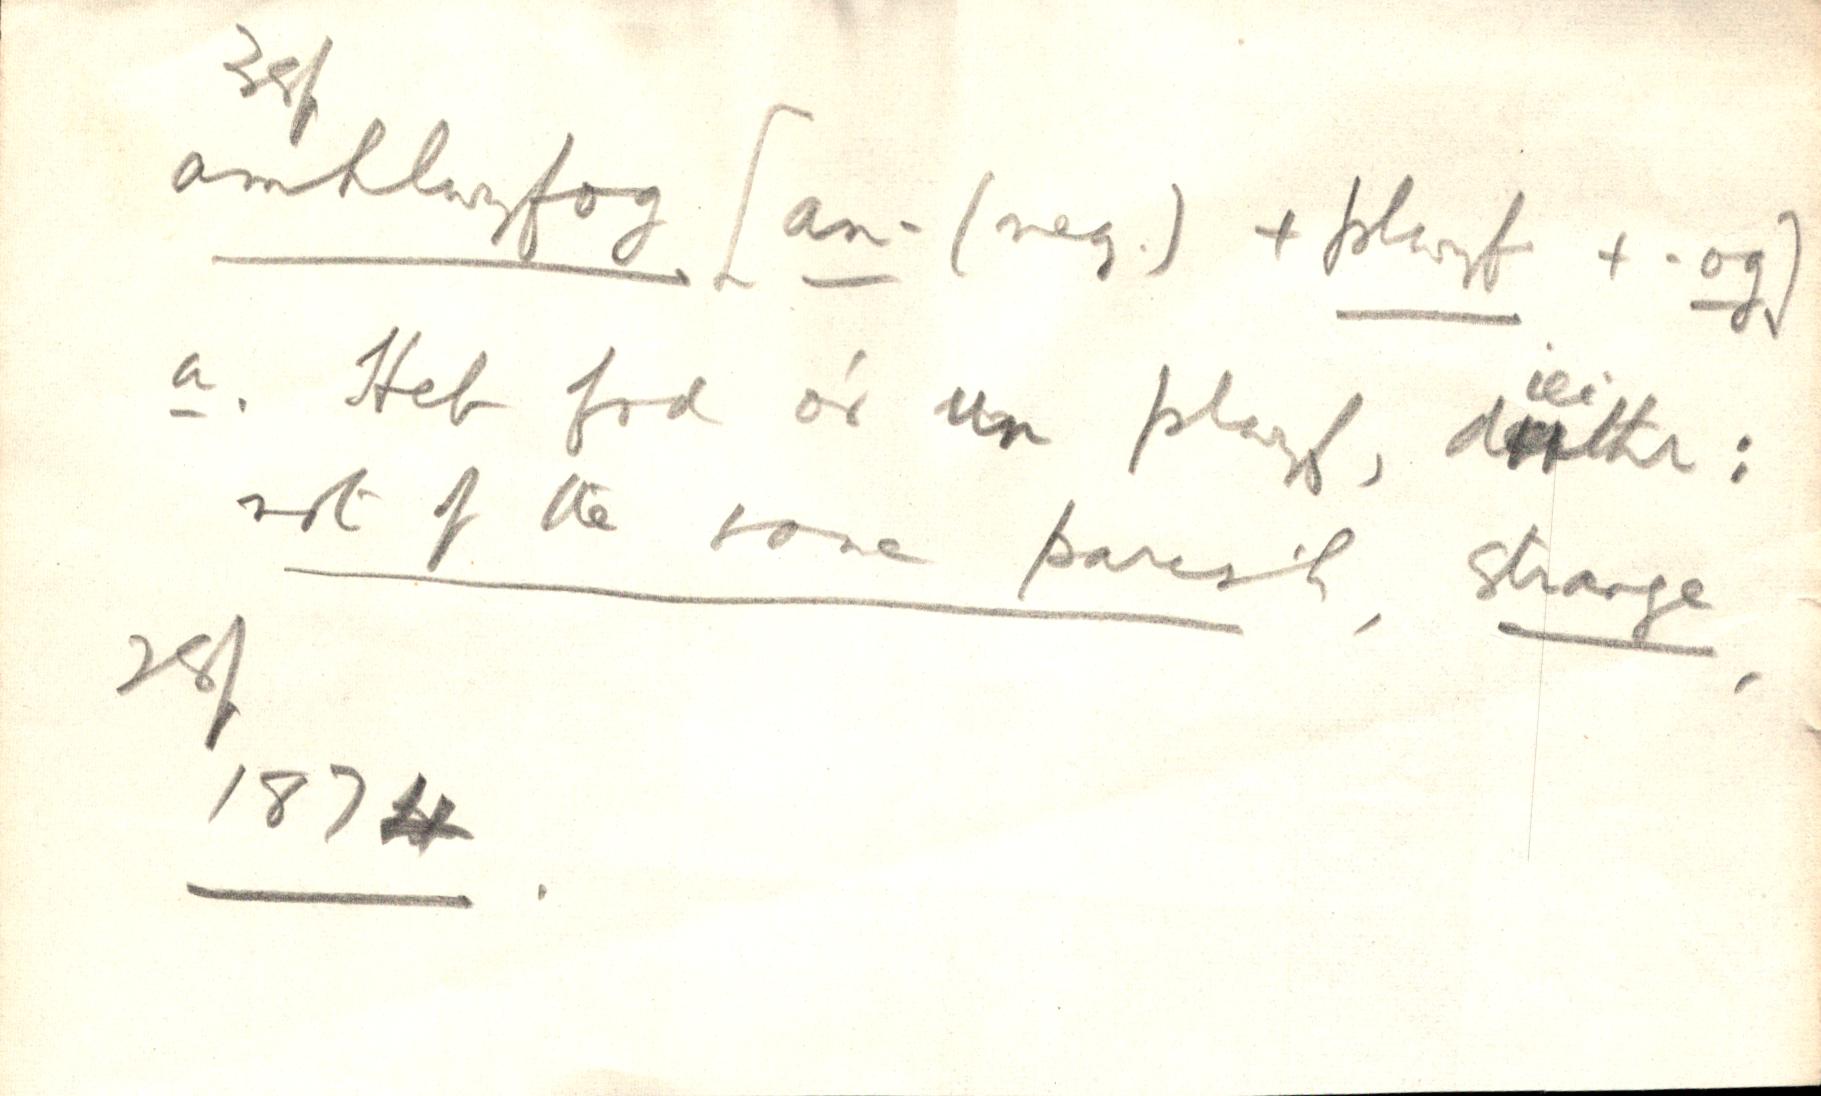 38/
amhlwyfog [an- (neg.) + plwyf + -og]
a. Heb fod o'r un plwyf, dieithr:
not of the same parish, strange,
28/
1874.